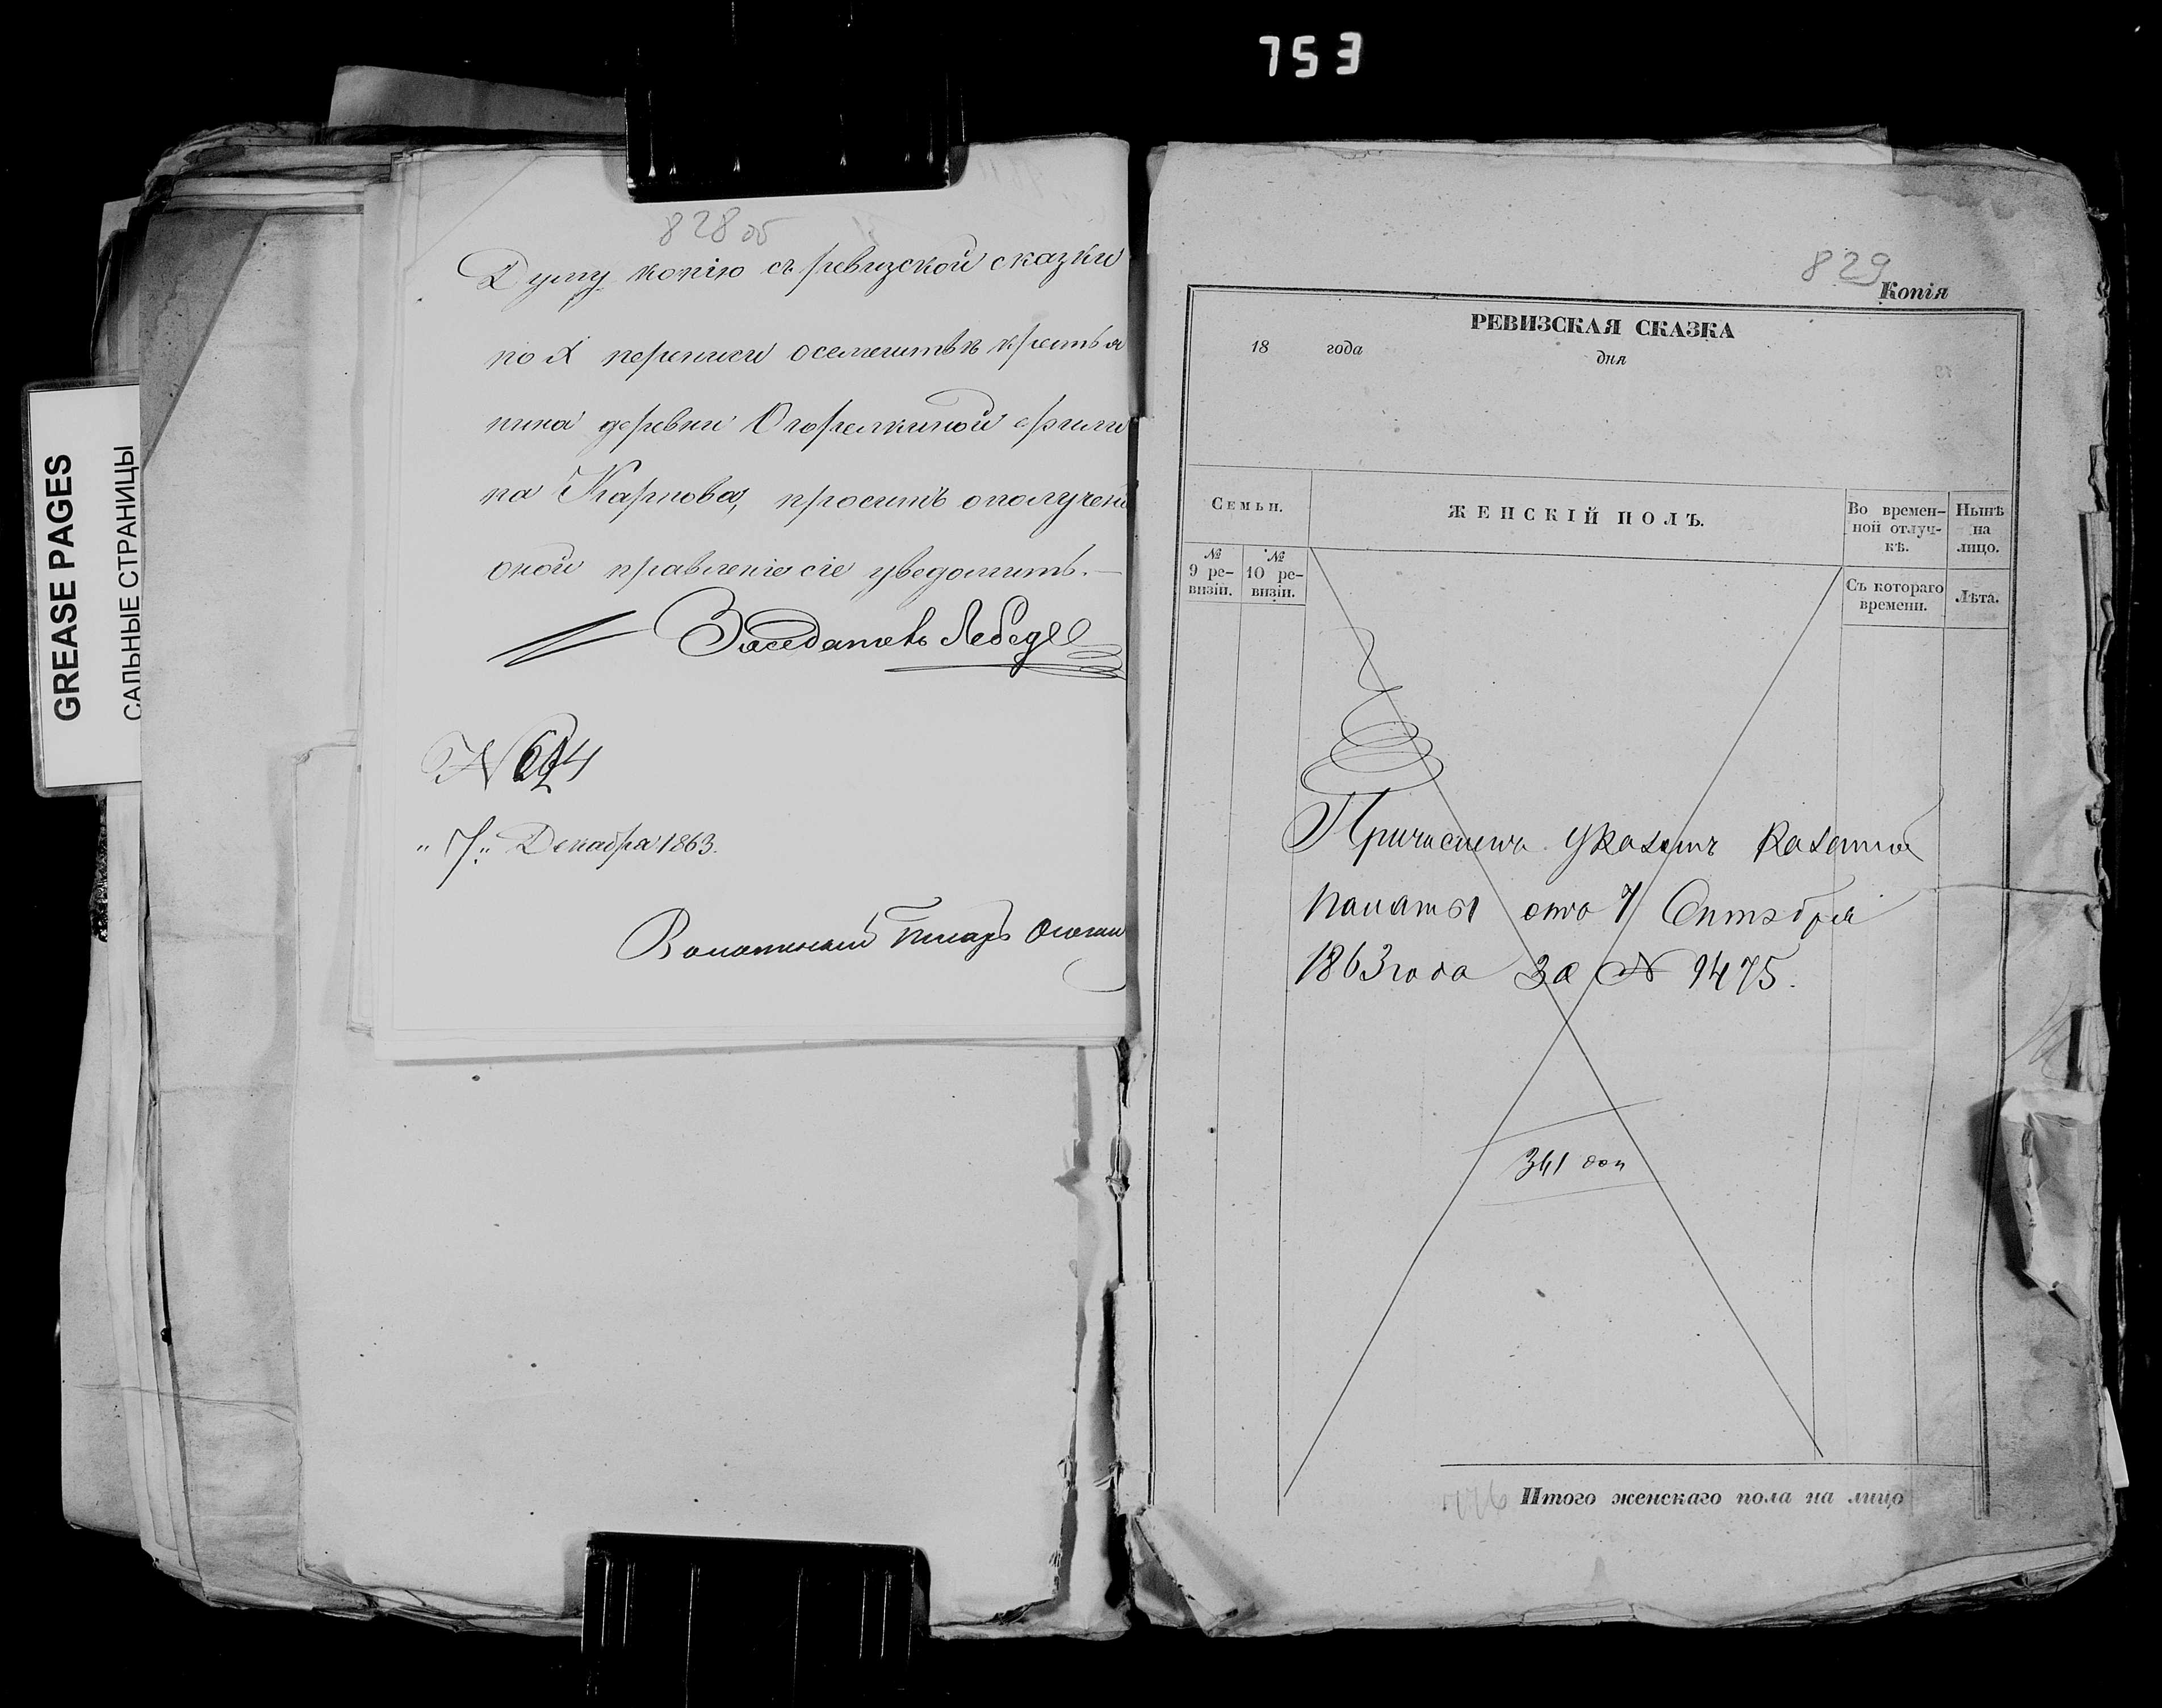 753
GREASE PAGES
САЛЬНЫЕ СТРАНИЦЫ
828 об
Думу копію съ ревизской сказки
по X переписи осемействѣ крестья
нина деревни Огорелкиной Филип
па Карпова, проситъ ополучені
оной правленіе сіе уведомить.—
Заседатель Лебеде
N 624
„7„ Декабря 1863.
Волостной Писарь
829
Копія
РЕВИЗСКАЯ СКАЗКА
18 года дня
Семьи.
ЖЕНСКІЙ ПОЛЪ.
Во времен-
ной отлуч-
кѣ.
Нынѣ
на
лицо.
№
9 ре-
визіи.
№
10 ре-
визіи.
Съ котораго
времени.
Лѣта.
Причисленъ указомъ Казенной
палаты отъ 7 Октября
1863 года За N 9475.
341 доп
Итого женскаго пола на лицо